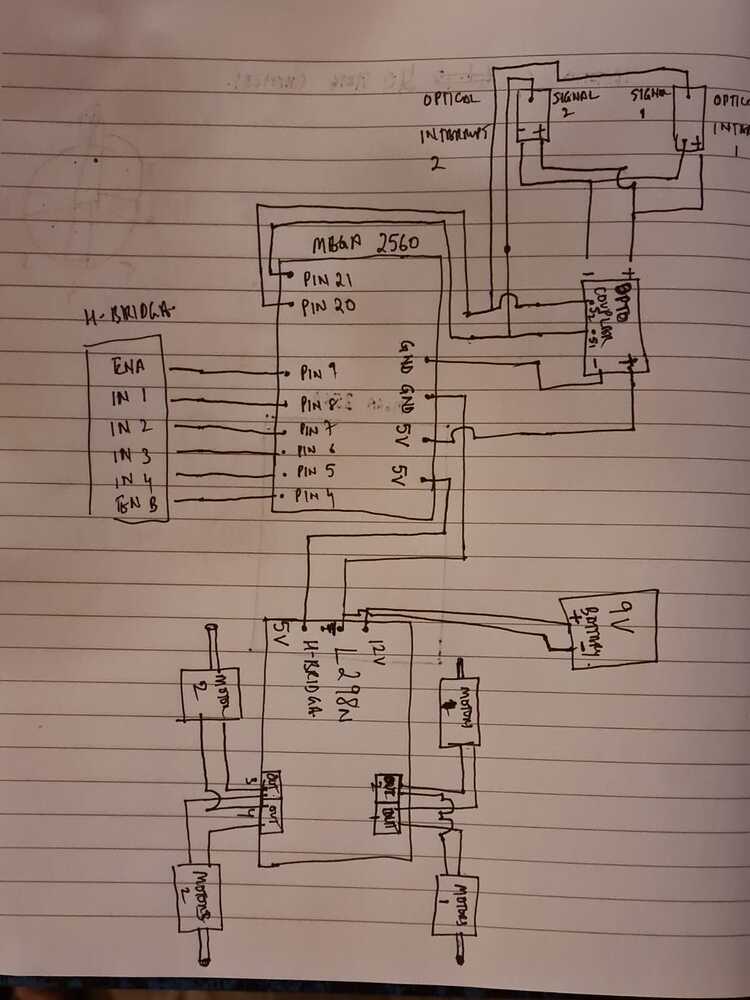 OPTICAL
INTERRUPT
2
SIGNAL
2
- +
SIGNAL
1
OPTICAL
INTER
1
+
MEGA 2560
PIN 21
PIN 20
PIN 9
PIN 8
PIN 7
PIN 6
PIN 5
PIN 4
GND
GND
5V
5V
- +
OPTO
COUPLER
S2 S1
- +
H-BRIDGA
ENA
IN 1
IN 2
IN 3
IN 4
EN B
9V
Battery
+ -
5V
12V
H-BRIDGA
L298N
MOTOR
2
MOTORS
2
MOTORS
1
OUT
3
OUT
4
OUT
2
OUT
1